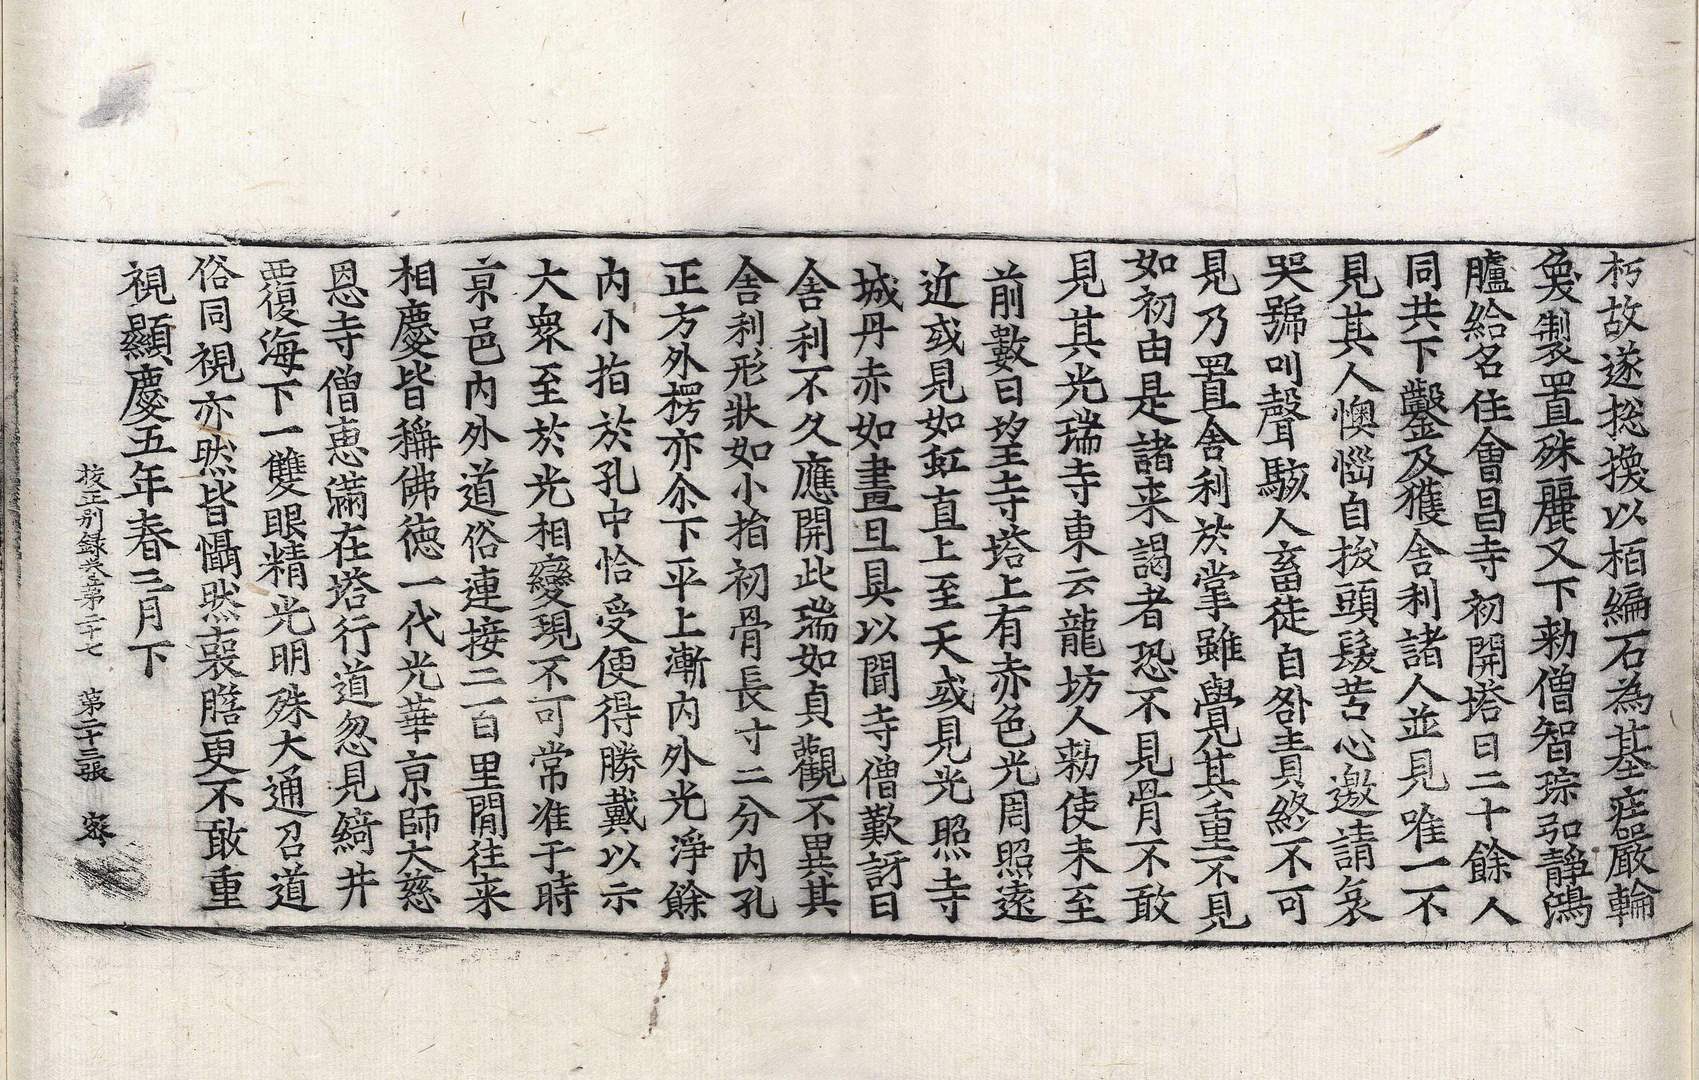 朽故遂揔換以栢編石為基莊嚴輪
奐製置殊麗又下勑僧智琮弘靜鴻
臚給名住會昌寺初開塔日二十餘人
同共下鑿及獲舍利諸人並見唯一不
見其人懊惱自拔頭髮苦心邀請哀
哭號叫聲駭人畜徒自咎責終不可
見乃置舍利於掌雖覺其重不見
如初由是諸来謁者恐不見骨不敢
見其光瑞寺東云龍坊人勑使未至
前數日望寺塔上有赤色光周照遠
近或見如虹直上至天或見光照寺
城丹赤如晝且具以聞寺僧歎訝曰
舍利不久應開此瑞如貞觀不異其
舍利形狀如小指初骨長寸二分內孔
正方外楞亦尒下平上漸內外光淨餘
內小指於孔中恰受便得勝戴以示
大衆至於光相變現不可常准于時
京邑內外道俗連接二百里間往来
相慶皆稱佛德一代光華京師大慈
恩寺僧惠滿在塔行道忽見綺井
覆海下一雙眼精光明殊大通召道
俗同視亦然皆懾然喪膽更不敢重
視顯慶五年春三月下
挍正別録 第二十七 第二十三張